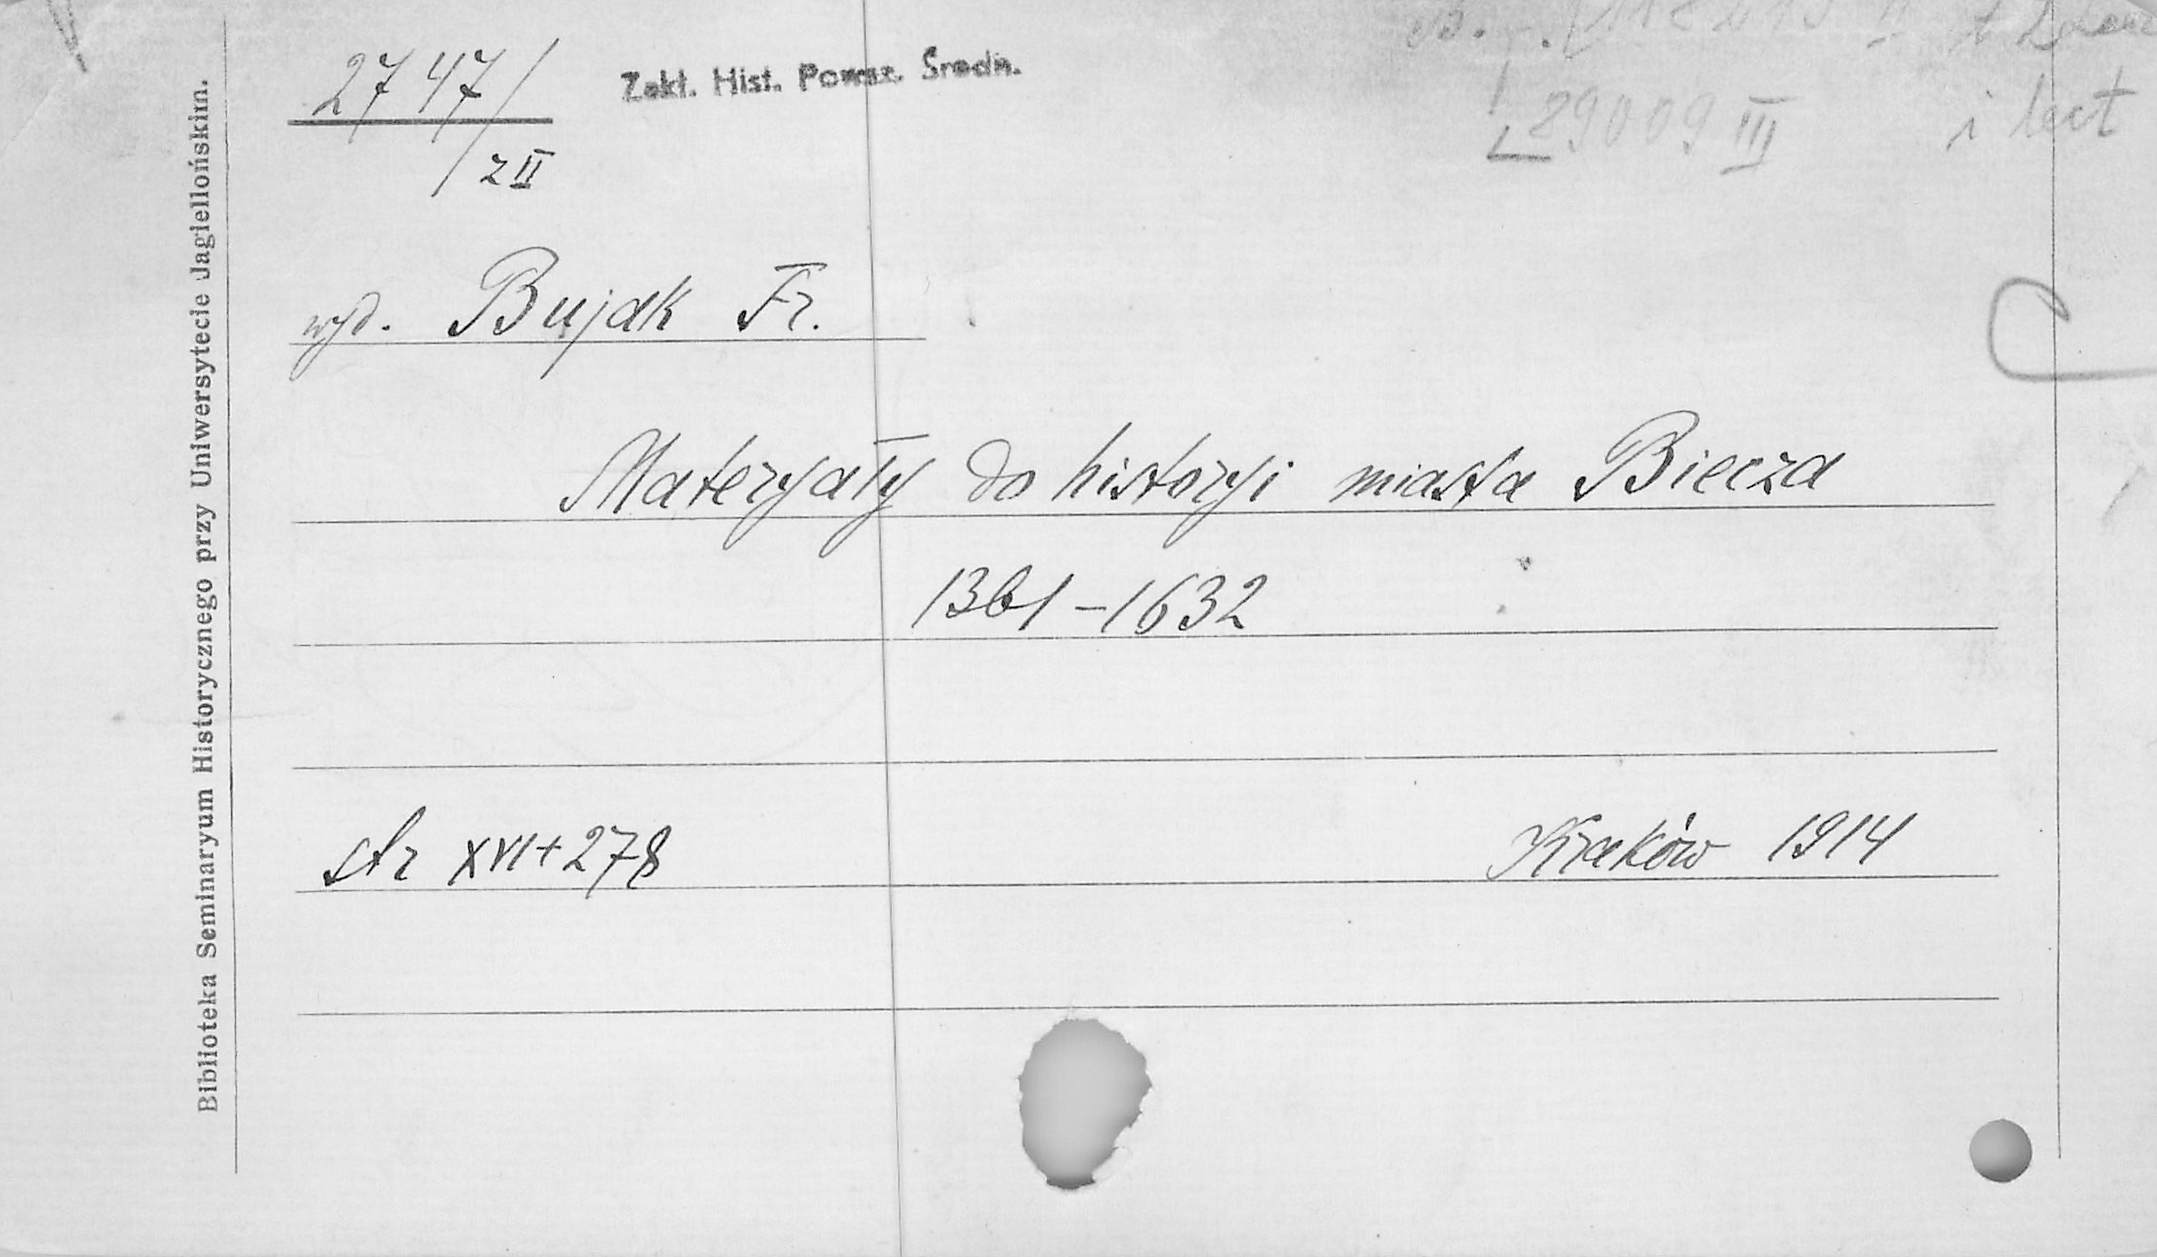 2747/
z II
Zakł. Hist. Powsz. Średn.
29009 III
i lect
wyd. Bujak Fr.
Materyały do historyi miasta Biecza
1361-1632
str XVI+278
Kraków 1914
Biblioteka Seminaryum Historycznego przy Uniwersytecie Jagiellońskim.